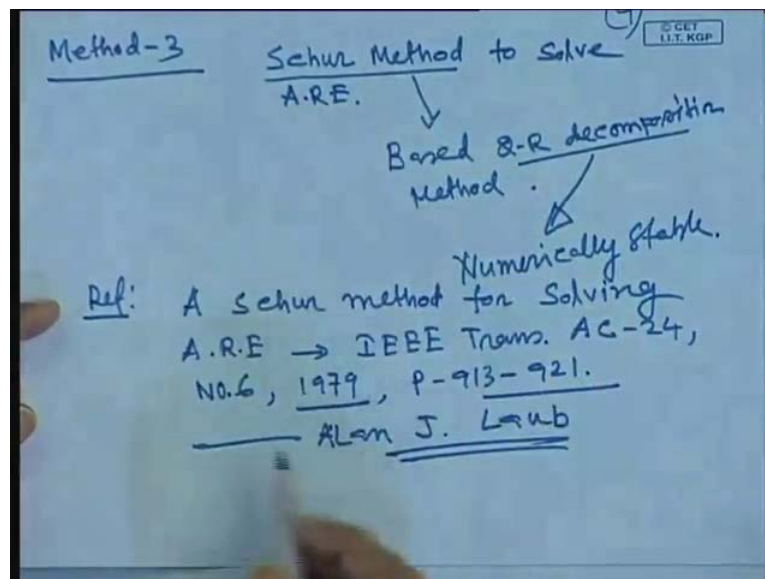 4
© CET
I.I.T. KGP
Method-3 Schur Method to Solve
A.R.E.
Based Q-R decomposition
Method.
Numerically Stable.
Ref: A Schur method for Solving
A.R.E → IEEE Trans. AC-24,
No.6, 1979, P-913-921.
Alan J. Laub